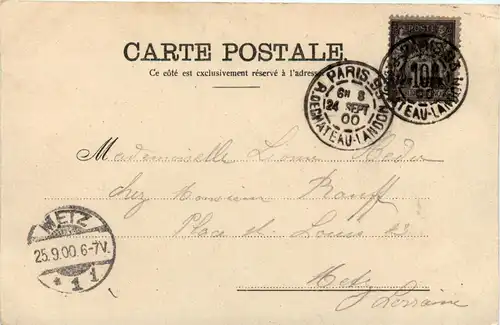 CARTE POSTALE
Ce côté est exclusivement réservé à l'adresse
POSTE
10
PARIS
6H 8
24 SEPT
00
R. DE CHATEAU-LANDON
CHATEAU-LANDON
Mademoiselle
chez Monsieur
Place St Louis
Metz
Lorraine
METZ
25.9.00.6-7V.
* 1 1